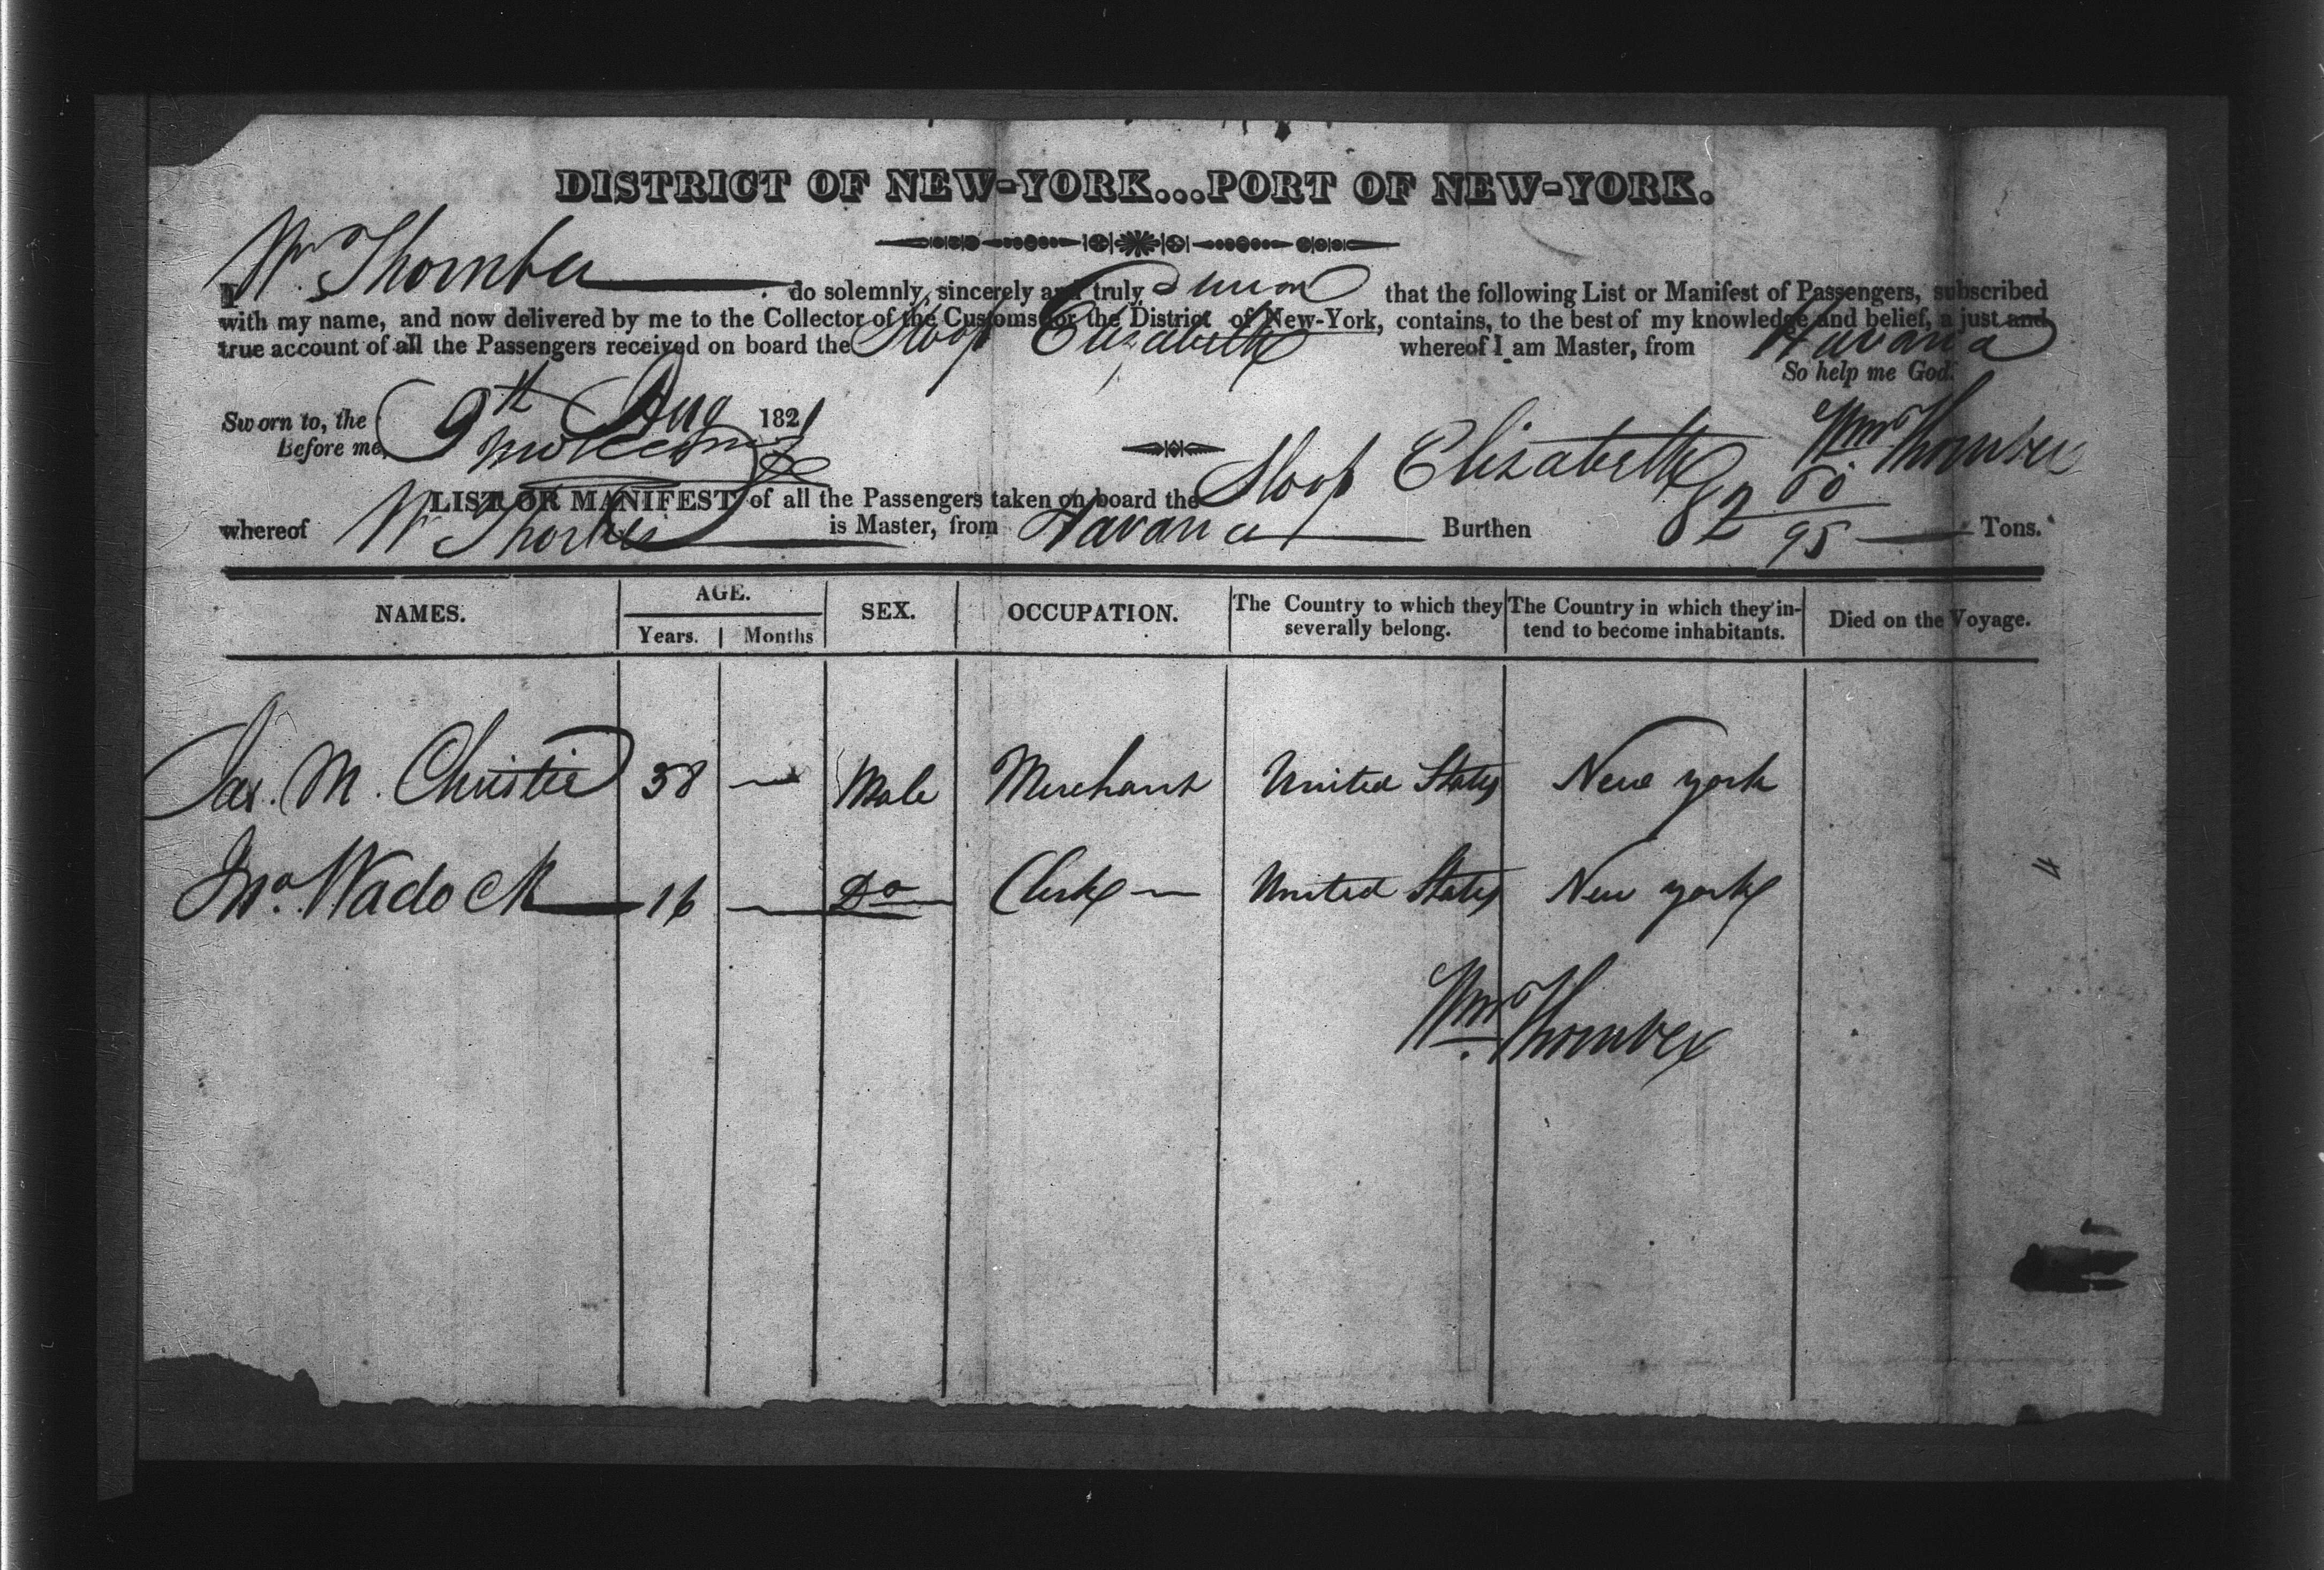 DISTRICT OF NEW-YORK...PORT OF NEW-YORK.
I Wm Thornber do solemnly, sincerely and truly swear that the following List or Manifest of Passengers, subscribed
with my name, and now delivered by me to the Collector of the Customs for the District of New-York, contains, to the best of my knowledge and belief, a just and
true account of all the Passengers received on board the Sloop Elizabeth whereof I am Master, from Havana
So help me God.
Sworn to, the 9th Aug 1821
Before me,
Wm Thornber
LIST OR MANIFEST of all the Passengers taken on board the Sloop Elizabeth
whereof Wm Thornber is Master, from Havana Burthen 82 60/95 Tons.
NAMES. AGE. SEX. OCCUPATION. The Country to which they severally belong. The Country in which they in-tend to become inhabitants. Died on the Voyage.
Years. Months
Jas. M. Christie 38 — Male Merchant United States New york
Jno. Wadock 16 — Do Clerk — United States New york
Wm Thornber